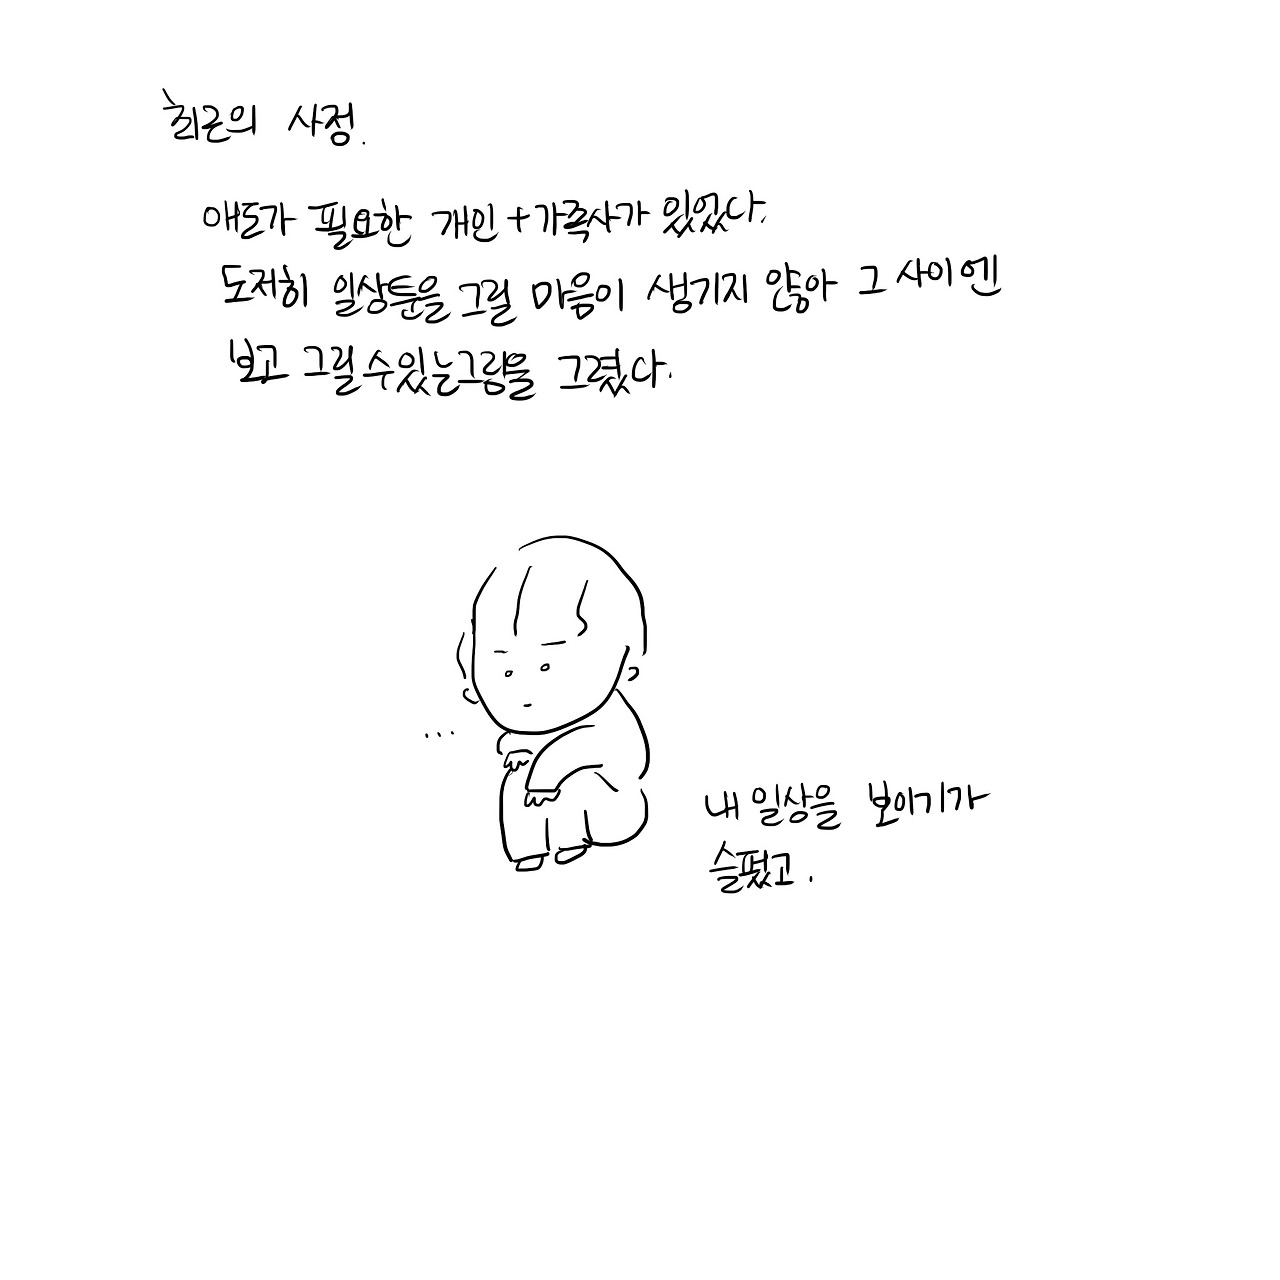 최근의 사정.
애도가 필요한 개인+가족사가 있었다.
도저히 일상툰을 그릴 마음이 생기지 않아 그 사이엔
보고 그릴 수 있는 그림을 그렸다.
...
내 일상을 보이기가
슬펐고.